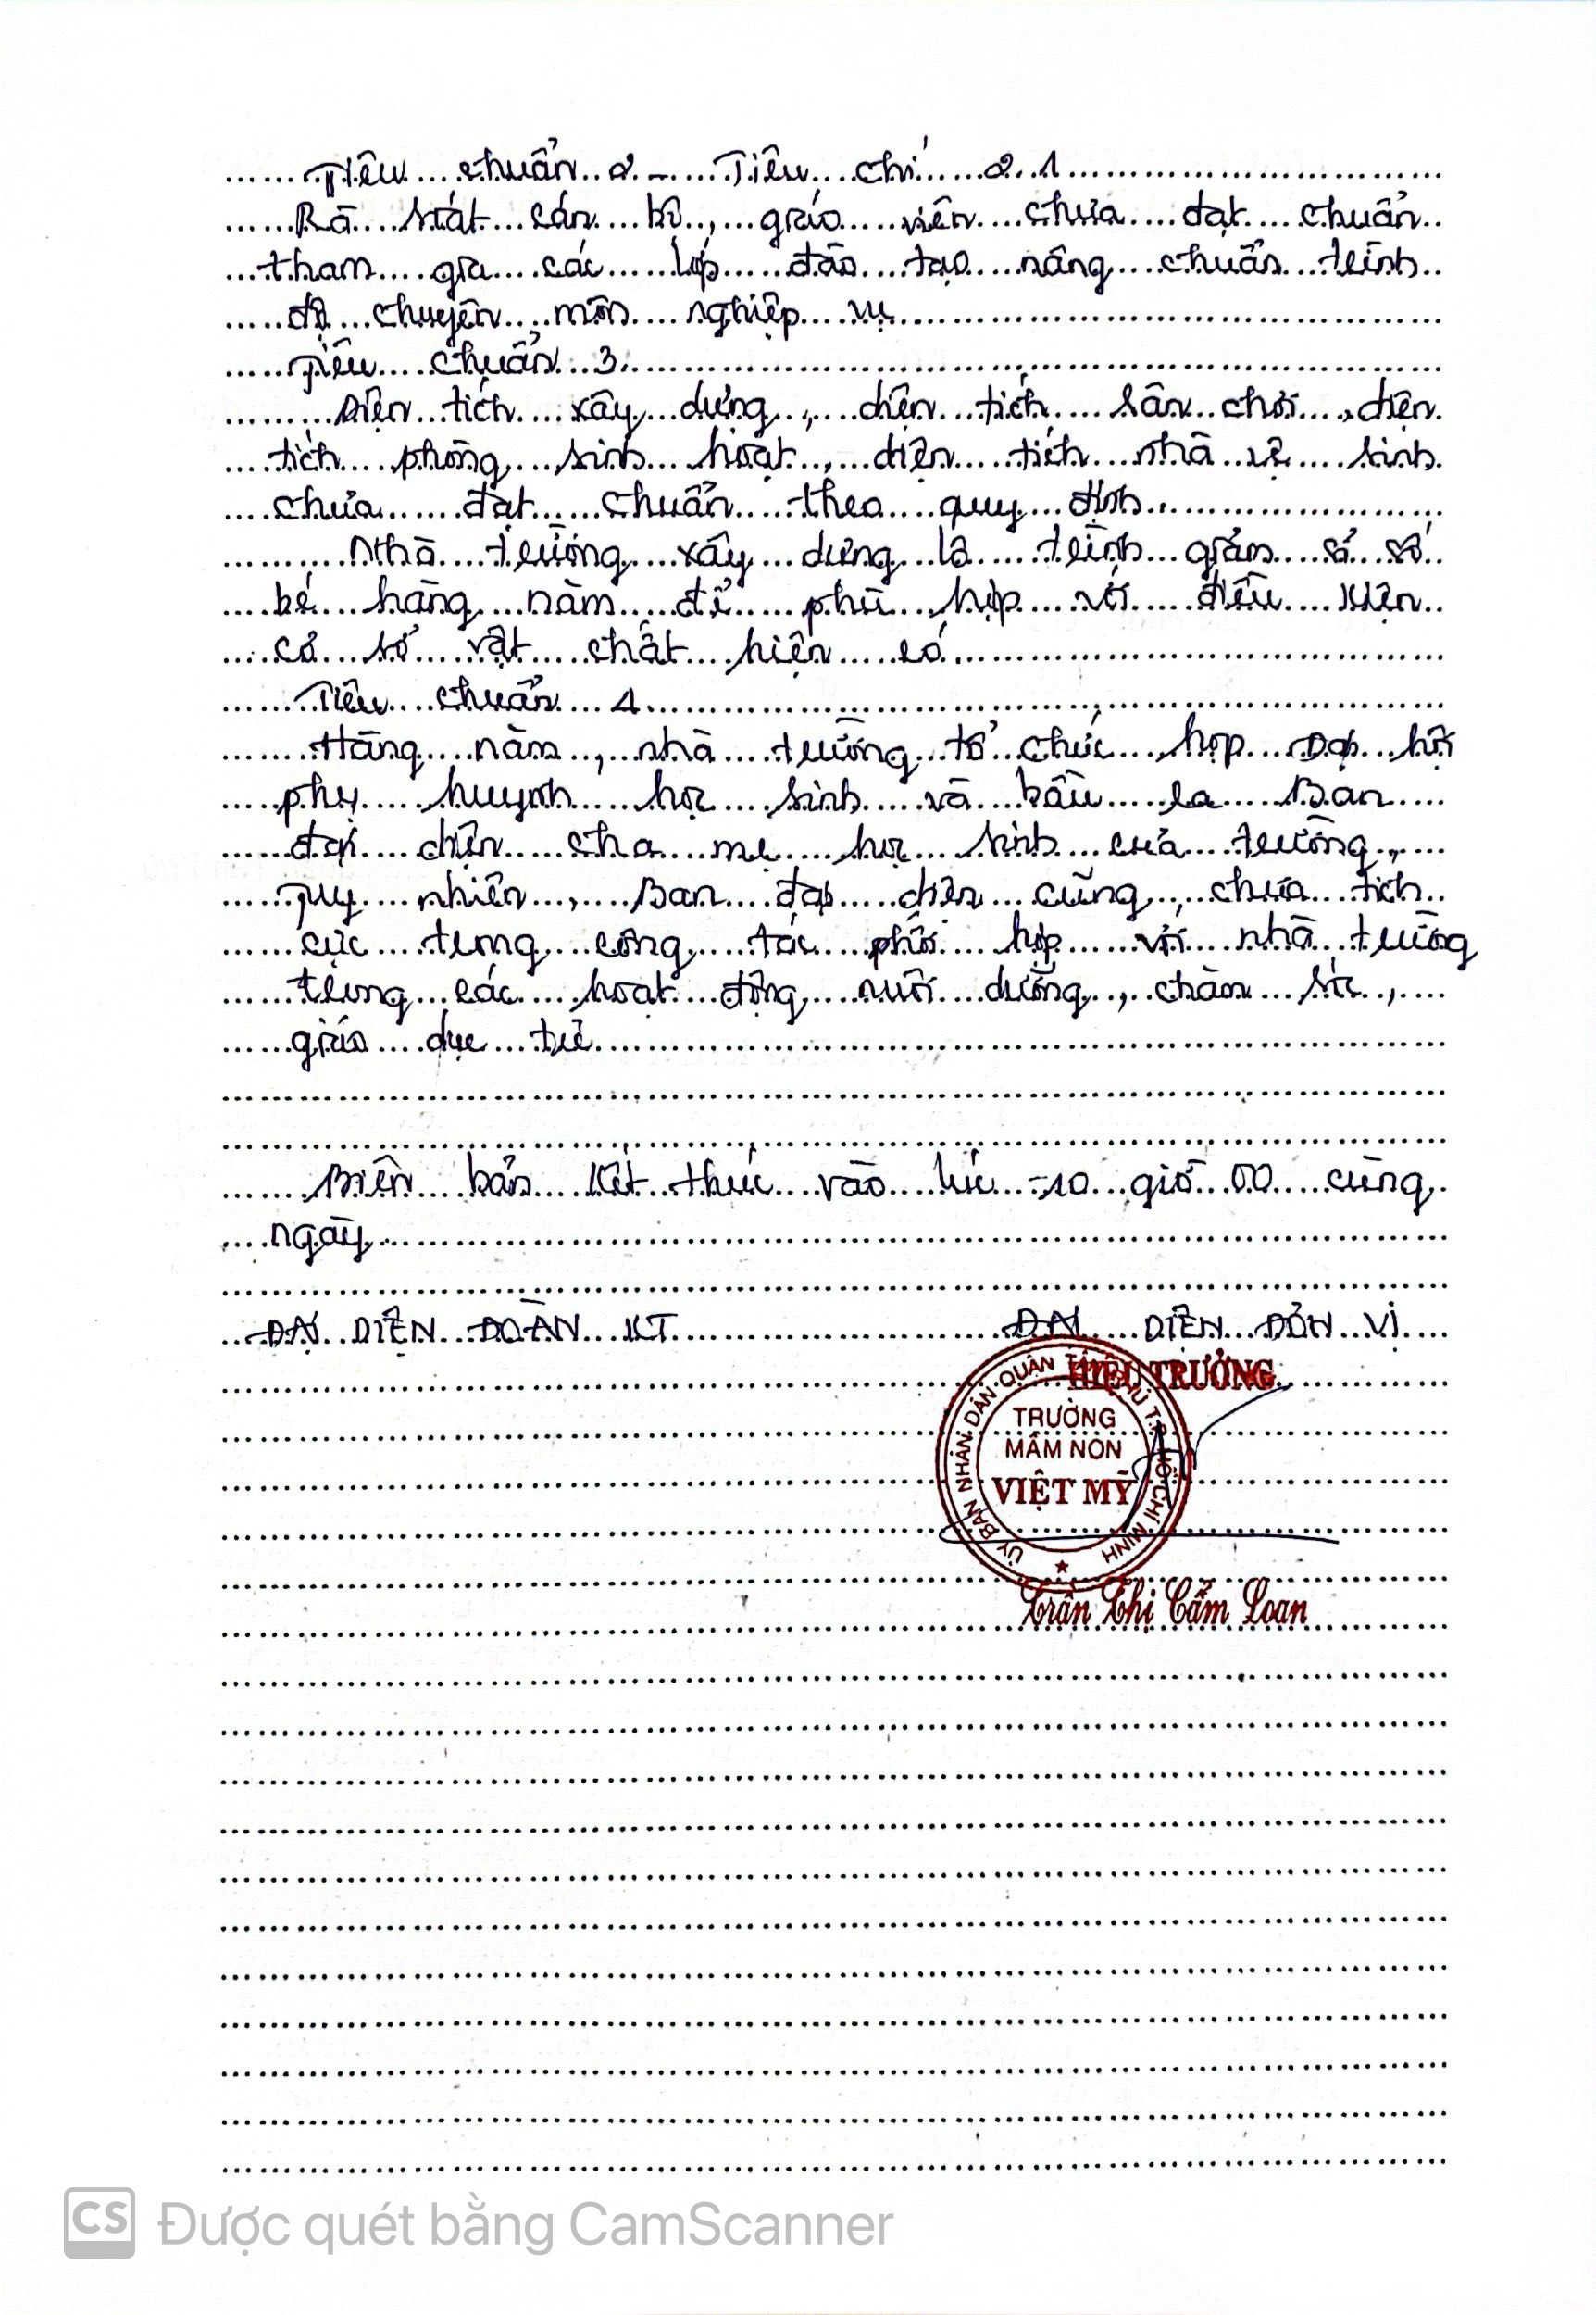 Tiêu chuẩn 2 - Tiêu chí 2.1
Rà soát cán bộ, giáo viên chưa đạt chuẩn
tham gia các lớp đào tạo nâng chuẩn trình
độ chuyên môn nghiệp vụ
Tiêu chuẩn 3.
Diện tích xây dựng, diện tích sân chơi, diện
tích phòng sinh hoạt, diện tích nhà vệ sinh
chưa đạt chuẩn theo quy định.
Nhà trường xây dựng lộ trình giảm sỉ số
bé hàng năm để phù hợp với điều kiện
cơ sở vật chất hiện có.
Tiêu chuẩn 4
Hàng năm, nhà trường tổ chức họp Đại hội
phụ huynh học sinh và bầu ra Ban
đại diện cha mẹ học sinh của trường,
Tuy nhiên, Ban đại diện cũng chưa tích
cực trong công tác phối hợp với nhà trường
trong các hoạt động nuôi dưỡng, chăm sóc,
giáo dục trẻ
Biên bản kết thúc vào lúc 10 giờ 00 cùng
ngày
ĐẠI DIỆN ĐOÀN KT
ĐẠI DIỆN ĐƠN VỊ
HIỆU TRƯỞNG
ỦY BAN NHÂN DÂN QUẬN TÂN PHÚ T.P HỒ CHÍ MINH
TRƯỜNG
MẦM NON
VIỆT MỸ
Trần Thị Cẩm Loan
CS Được quét bằng CamScanner